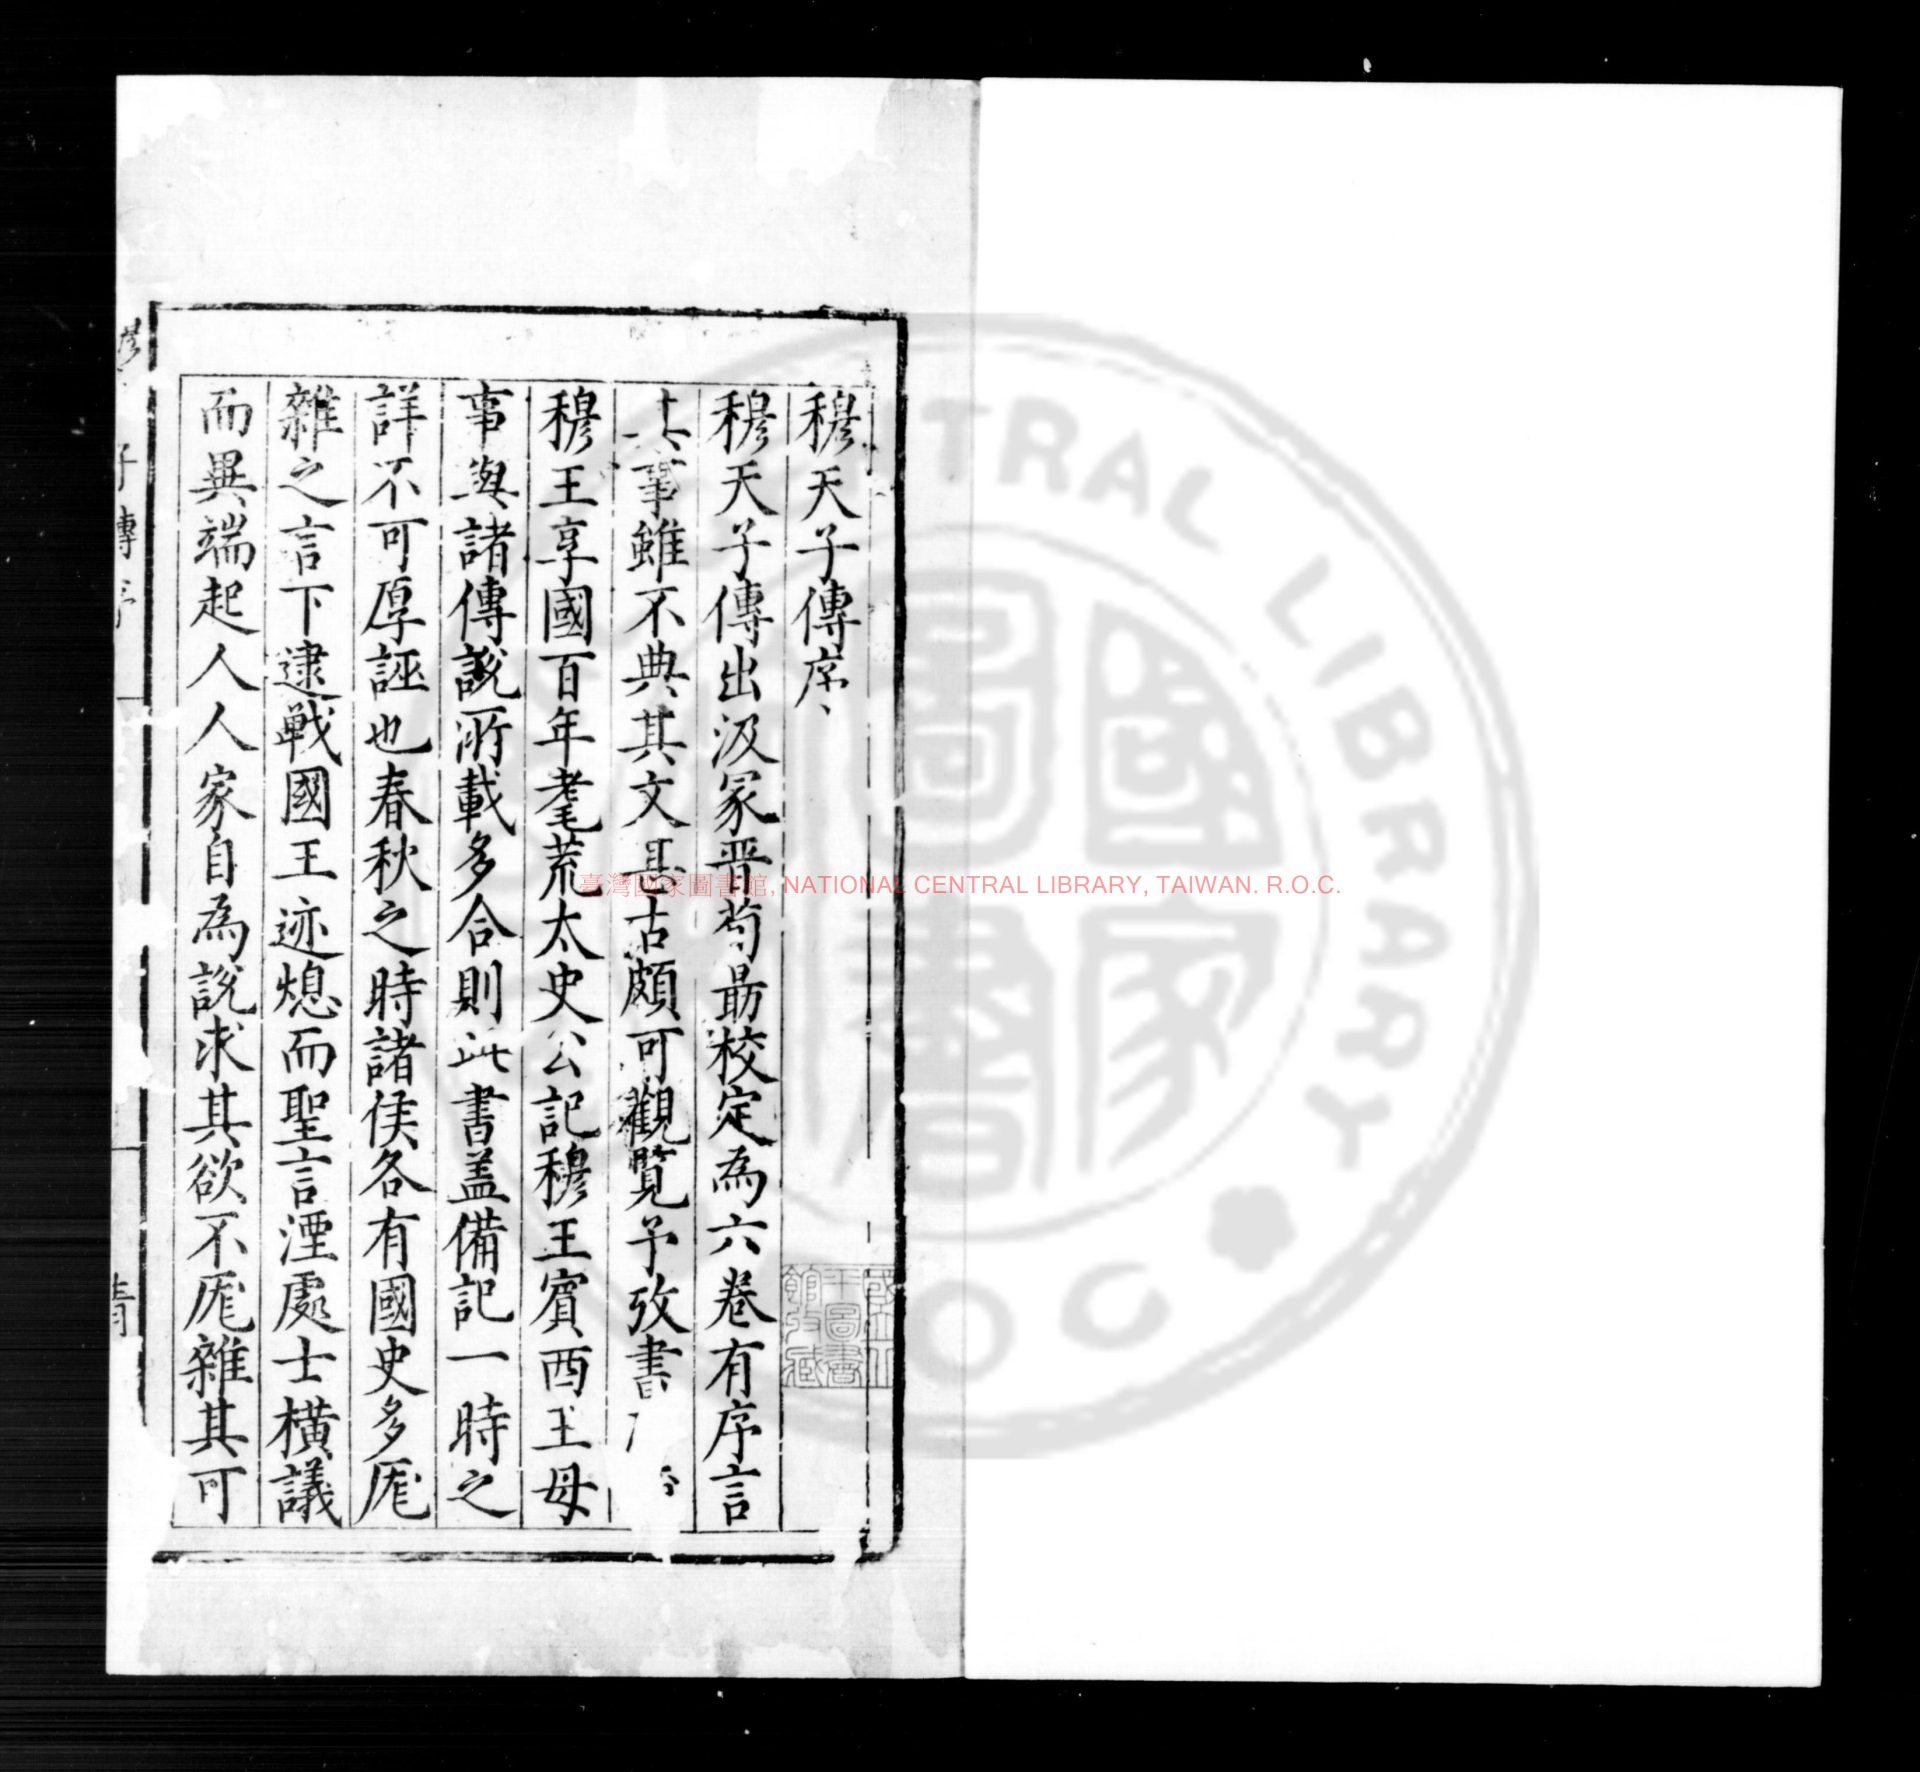 穆天子傳序
穆天子傳出汲冢晉荀勗校定為六卷有序言
其事雖不典其文甚古頗可觀覽予攷書
穆王享國百年耄荒太史公記穆王賓西王母
事與諸傳說所載多合則此書盖備記一時之
詳不可厚誣也春秋之時諸侯各有國史多厖
雜之言下逮戰國王迹熄而聖言湮處士橫議
而異端起人人家自為說求其欲不厖雜其可
子傳序
臺灣國家圖書館, NATIONAL CENTRAL LIBRARY, TAIWAN. R.O.C.